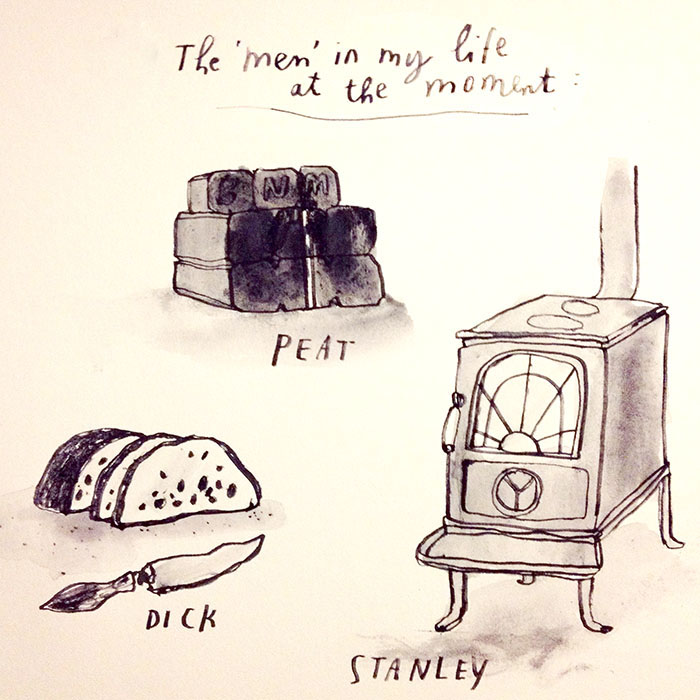 The 'men' in my life
at the moment:
BNM
PEAT
DICK
STANLEY